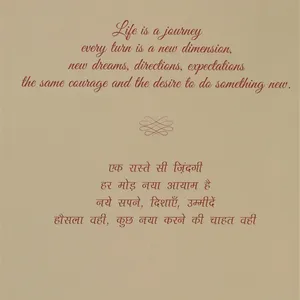 Life is a journey
every turn is a new dimension,
new dreams, directions, expectations
the same courage and the desire to do something new.
एक रास्ते सी ज़िंदगी
हर मोड़ नया आयाम है
नये सपने, दिशाएँ, उम्मीदें
हौसला वही, कुछ नया करने की चाहत वही